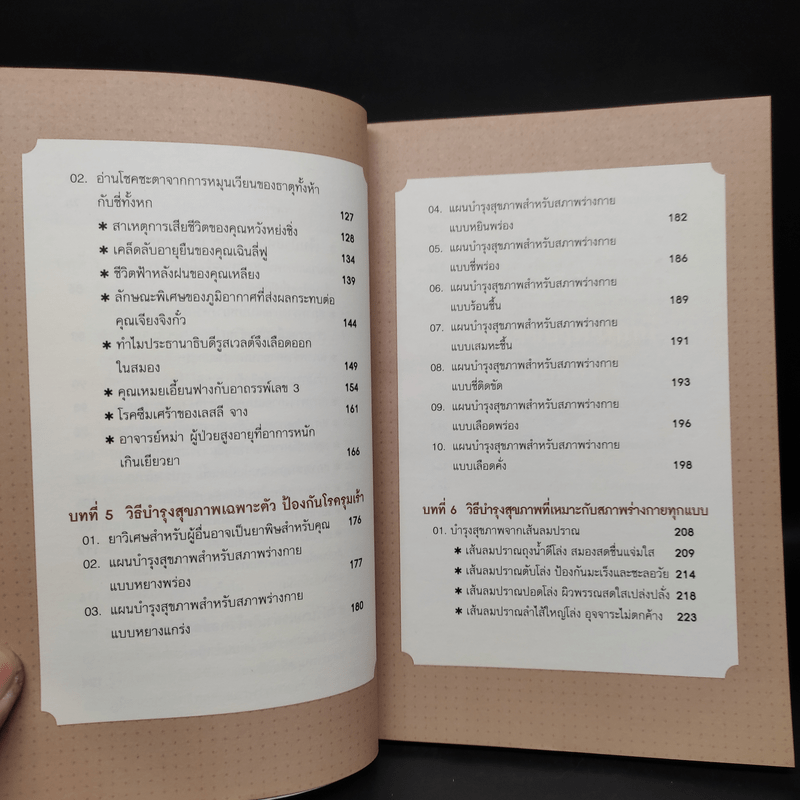 02. อ่านโชคชะตาจากการหมุนเวียนของธาตุทั้งห้า
กับชี่ทั้งหก 127
✱ สาเหตุการเสียชีวิตของคุณหวังหย่งชิ่ง 128
✱ เคล็ดลับอายุยืนของคุณเฉินลี่ฟู 134
✱ ชีวิตฟ้าหลังฝนของคุณเหลียง 139
✱ ลักษณะพิเศษของภูมิอากาศที่ส่งผลกระทบต่อ
คุณเจียงจิงกั๋ว 144
✱ ทำไมประธานาธิบดีรูสเวลต์จึงเลือดออก
ในสมอง 149
✱ คุณเหมยเอี้ยนฟางกับอาถรรพ์เลข 3 154
✱ โรคซึมเศร้าของเลสลี จาง 161
✱ อาจารย์หม่า ผู้ป่วยสูงอายุที่อาการหนัก
เกินเยียวยา 166
บทที่ 5 วิธีบำรุงสุขภาพเฉพาะตัว ป้องกันโรครุมเร้า
01. ยาวิเศษสำหรับผู้อื่นอาจเป็นยาพิษสำหรับคุณ 176
02. แผนบำรุงสุขภาพสำหรับสภาพร่างกาย
แบบหยางพร่อง 177
03. แผนบำรุงสุขภาพสำหรับสภาพร่างกาย
แบบหยางแกร่ง 180
04. แผนบำรุงสุขภาพสำหรับสภาพร่างกาย
แบบหยินพร่อง 182
05. แผนบำรุงสุขภาพสำหรับสภาพร่างกาย
แบบชี่พร่อง 186
06. แผนบำรุงสุขภาพสำหรับสภาพร่างกาย
แบบร้อนชื้น 189
07. แผนบำรุงสุขภาพสำหรับสภาพร่างกาย
แบบเสมหะชื้น 191
08. แผนบำรุงสุขภาพสำหรับสภาพร่างกาย
แบบชี่ติดขัด 193
09. แผนบำรุงสุขภาพสำหรับสภาพร่างกาย
แบบเลือดพร่อง 196
10. แผนบำรุงสุขภาพสำหรับสภาพร่างกาย
แบบเลือดคั่ง 198
บทที่ 6 วิธีบำรุงสุขภาพที่เหมาะกับสภาพร่างกายทุกแบบ
01. บำรุงสุขภาพจากเส้นลมปราณ 208
✱ เส้นลมปราณถุงน้ำดีโล่ง สมองสดชื่นแจ่มใส 209
✱ เส้นลมปราณตับโล่ง ป้องกันมะเร็งและชะลอวัย 214
✱ เส้นลมปราณปอดโล่ง ผิวพรรณสดใสเปล่งปลั่ง 218
✱ เส้นลมปราณลำไส้ใหญ่โล่ง อุจจาระไม่ตกค้าง 223